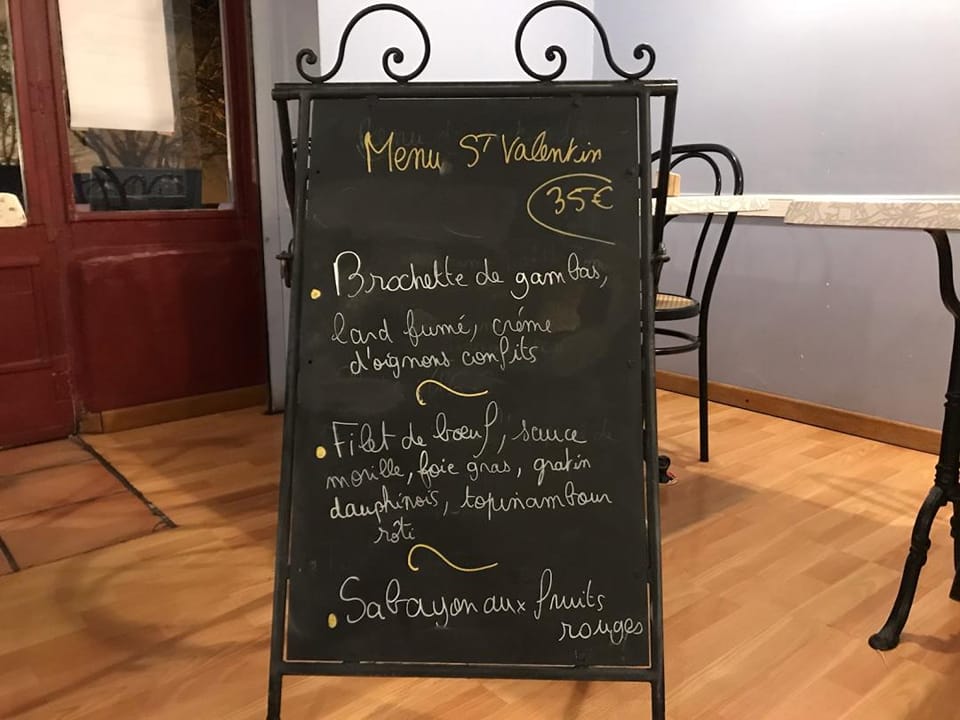 Menu St Valentin
35€
Brochette de gambas,
lard fumé, créme
d'oignons confits
Filet de bœuf, sauce
morille, foie gras, gratin
dauphinois, topinambour
rôti
Sabayon aux fruits
rouges